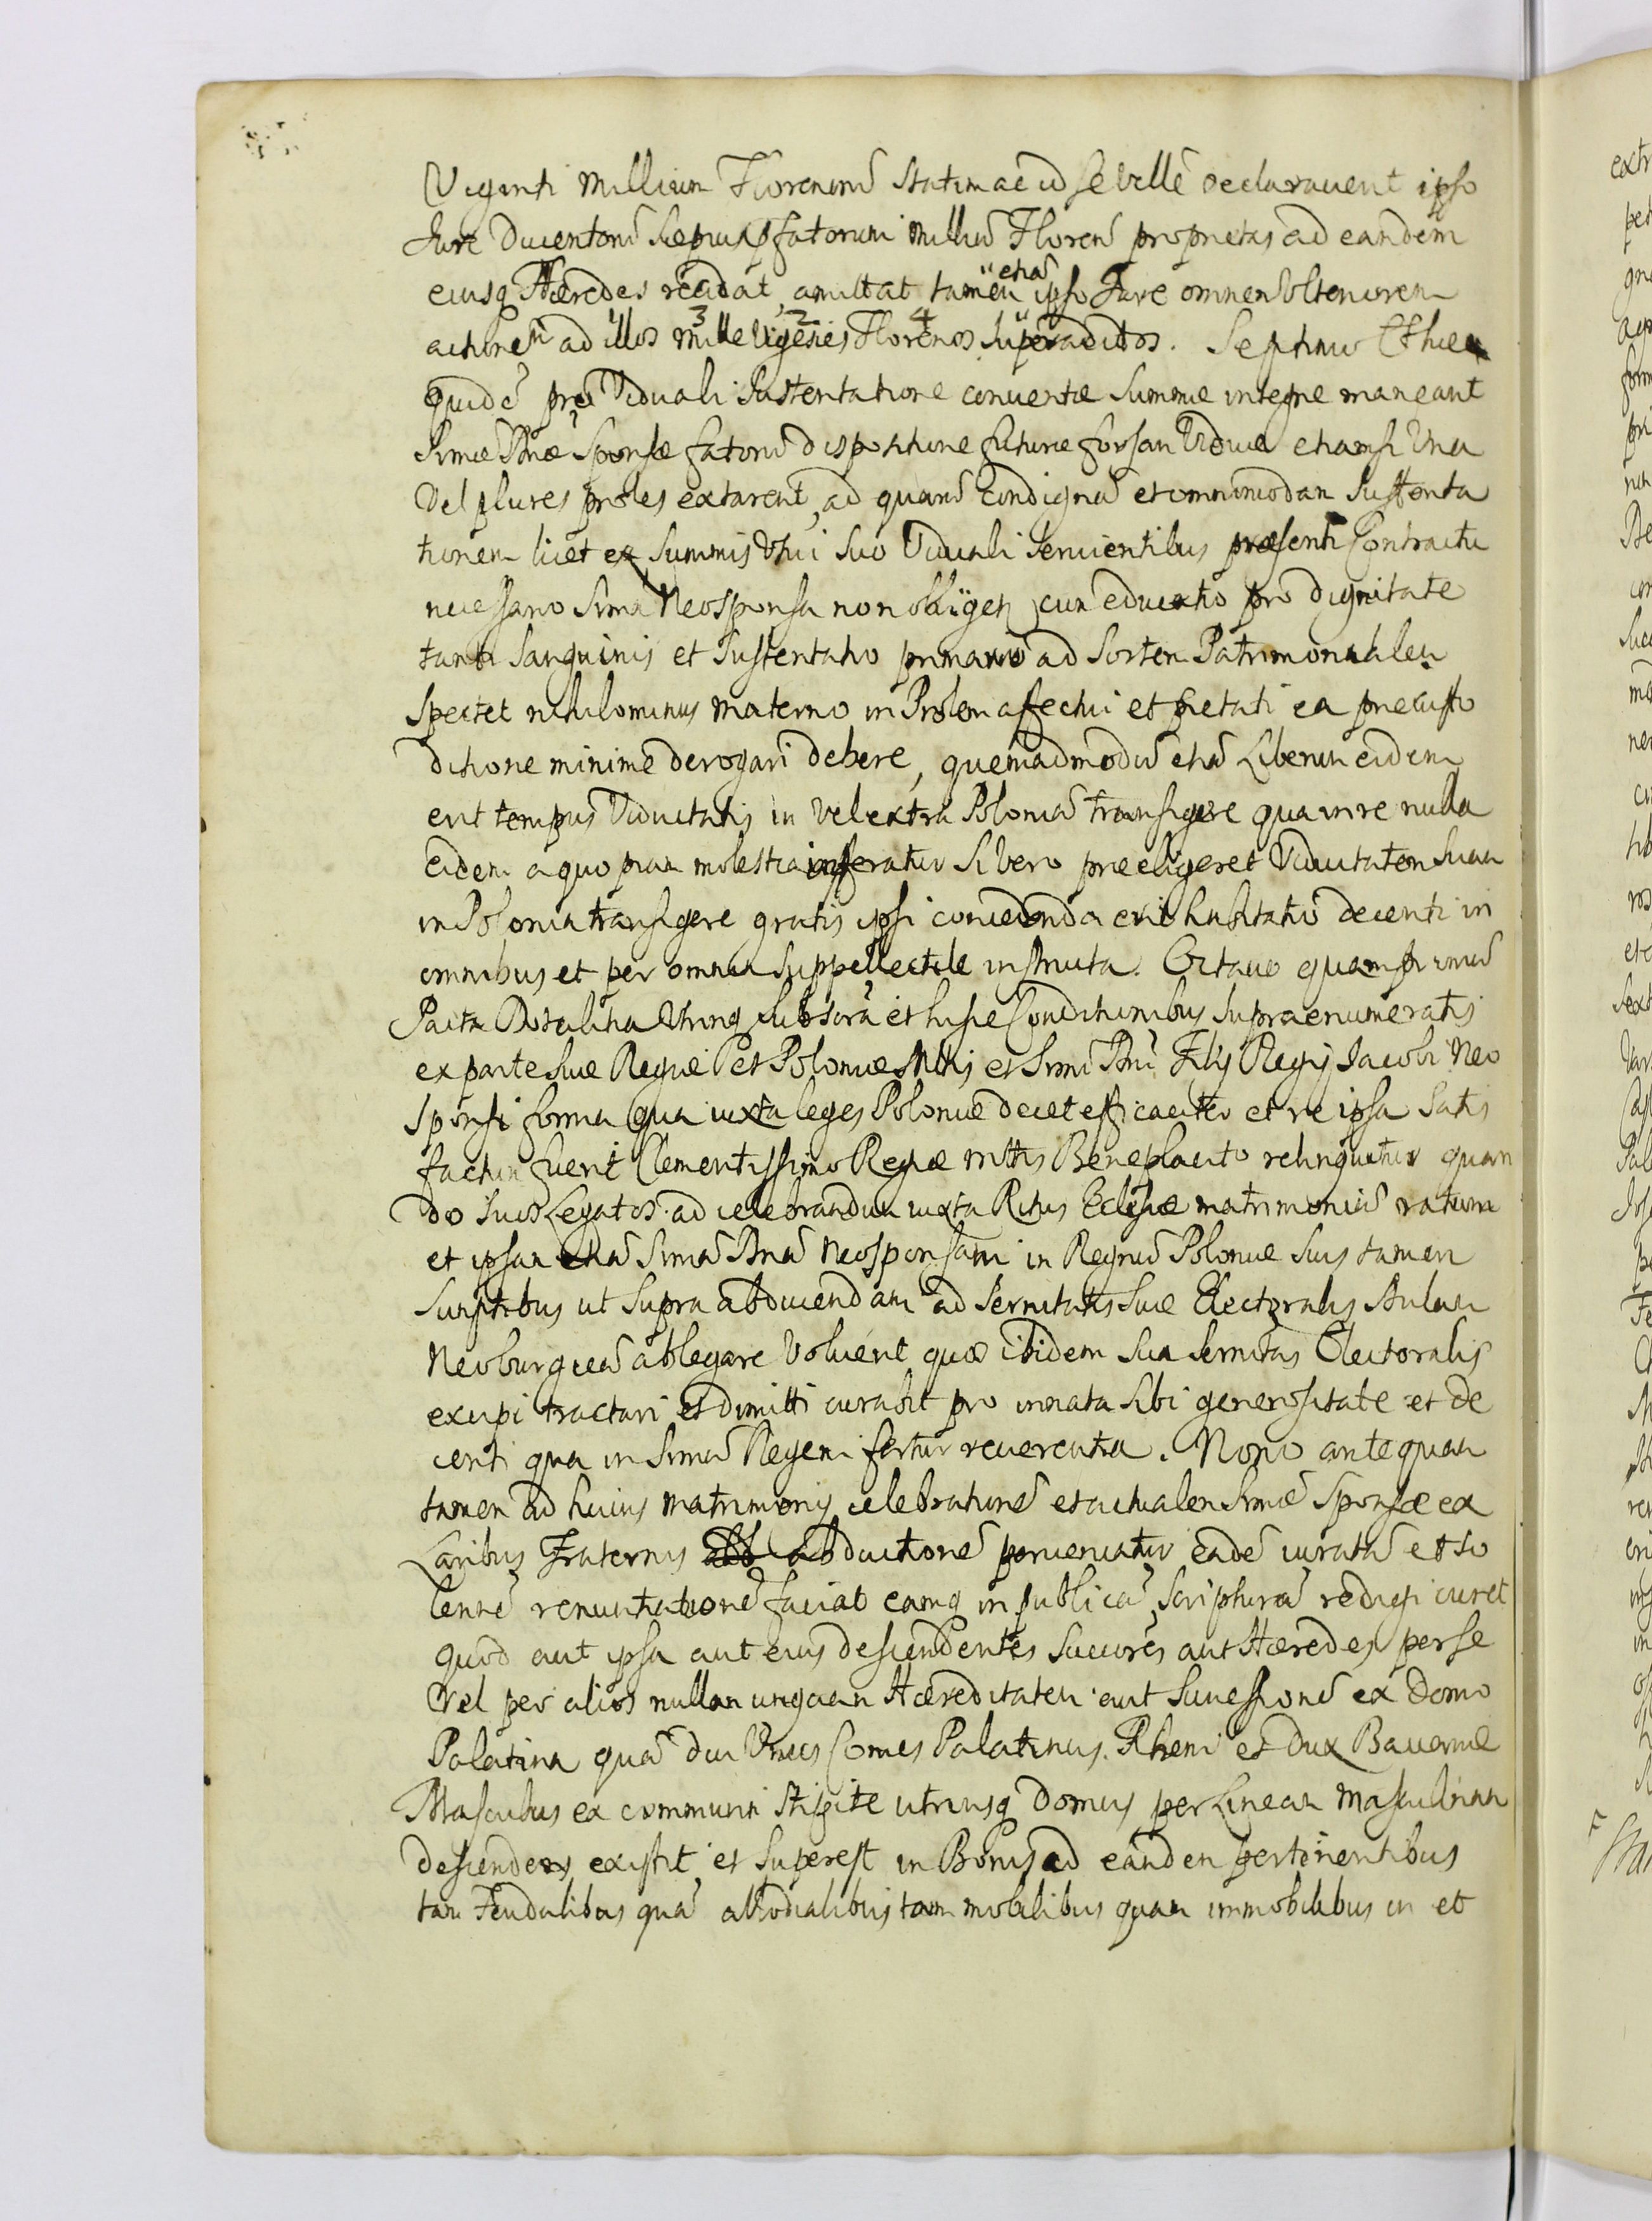 Viginti Millium Florenorū statim ac id se velle declarauerit ipso
Jure Ducentorū saepius pfatorum Milliū Florenū proprietas ad eandem
eiusq Hæredes recidat, amittat tamen etiā ipso Jure omnem Vlteriorem
actionem ad illos mille vigesies Florenos superadditos. Septimo Et hæ
quidē pro Viduali Sustentatione conuentæ Summæ integræ maneant
Srmæ Dnæ Sponsæ fatorū dispositione futuræ forsan Viduæ etiamsi Vna
Vel plures proles extarent, ad quarū condignā et omnimodam Sustenta
tionem licet ex Summis Vsui suo Viduali Seruientibus præsenti Contractu
necessario Srma Neosponsa non obligetr, cum educatio pro dignitate
tanti Sanguinis et Sustentatio primario ad Sortem Patrimonialem
Spectet nihilominus materno in Prolem affectui et pietati ea præcusto
ditione minime derogari debere, quemadmodū etiā Liberum eidem
erit tempus Viduitatis in vel extra Poloniā transigere qua in re nulla
Eidem a quopiam molestia inferatur Si vero præeligeret Viduitatem Suam
in Polonia transigere gratis ipsi concedenda erit habitatio decenti in
omnibus et per omnia Suppellectile instructa. Octauo quamprimū
Pacta Dotalitia Vtrinq subscra et hisce Conditionibus supraenumeratis
ex parte suæ Regiæ et Poloniæ Mttis et Srmi Dni Filij Regij Jacobi Neo
Sponsi forma qua iuxta leges Poloniæ decet efficaciter et re ipsa Satis
factum fuerit Clementissimo Regiæ Mttis Beneplacito relinquitur quan
do suos Legatos ad celebrandum iuxta Ritus Eclesiæ matrimoniū ratum
et ipsam etiā Srmā Dnā Neosponsam in Regnū Poloniæ suis tamen
Sumptibus ut Supra abducendam ad Sernitatis Suæ Electoralis Aulam
Neoburgicā ablegare Voluerit quos ibidem Sua Sernitas Electoralis
excipi tractari et dimitti curabit pro innata sibi generositate et de
centi qua in Srmū Regem fertur reuerentia. Nono antequam
tamen ad huius matrimonij celebrationē et actualem Srmæ Sponsæ ex
Laribus Fraternis abductionē perueniatur Eadē iuratā et so
lennē renuntiationē faciat eamq in publicā Scripturā redigi curet
quod aut ipsa aut eius descendentes Succores aut Hæredes per se
Vel per alios nullam unquam Hæreditatem aut Successionē ex Domo
Palatina quā diu Vnus Comes Palatinus Rheni et Dux Bauariæ
Masculus ex communi Stipite utriusq Domus per Lineam Masculinam
descendens existit, et Superest in Bonis ad eandem pertinentibus
tam Feudalibus quā allodialibus tam mobilibus quam immobilibus in et